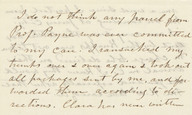 I do not think any parcel from
Prof. Payne was ever committed
to my care. I ransacked my
trunks over & over again & took out
all packages sent by me and for
warded them according to di
rections. Clara has now written